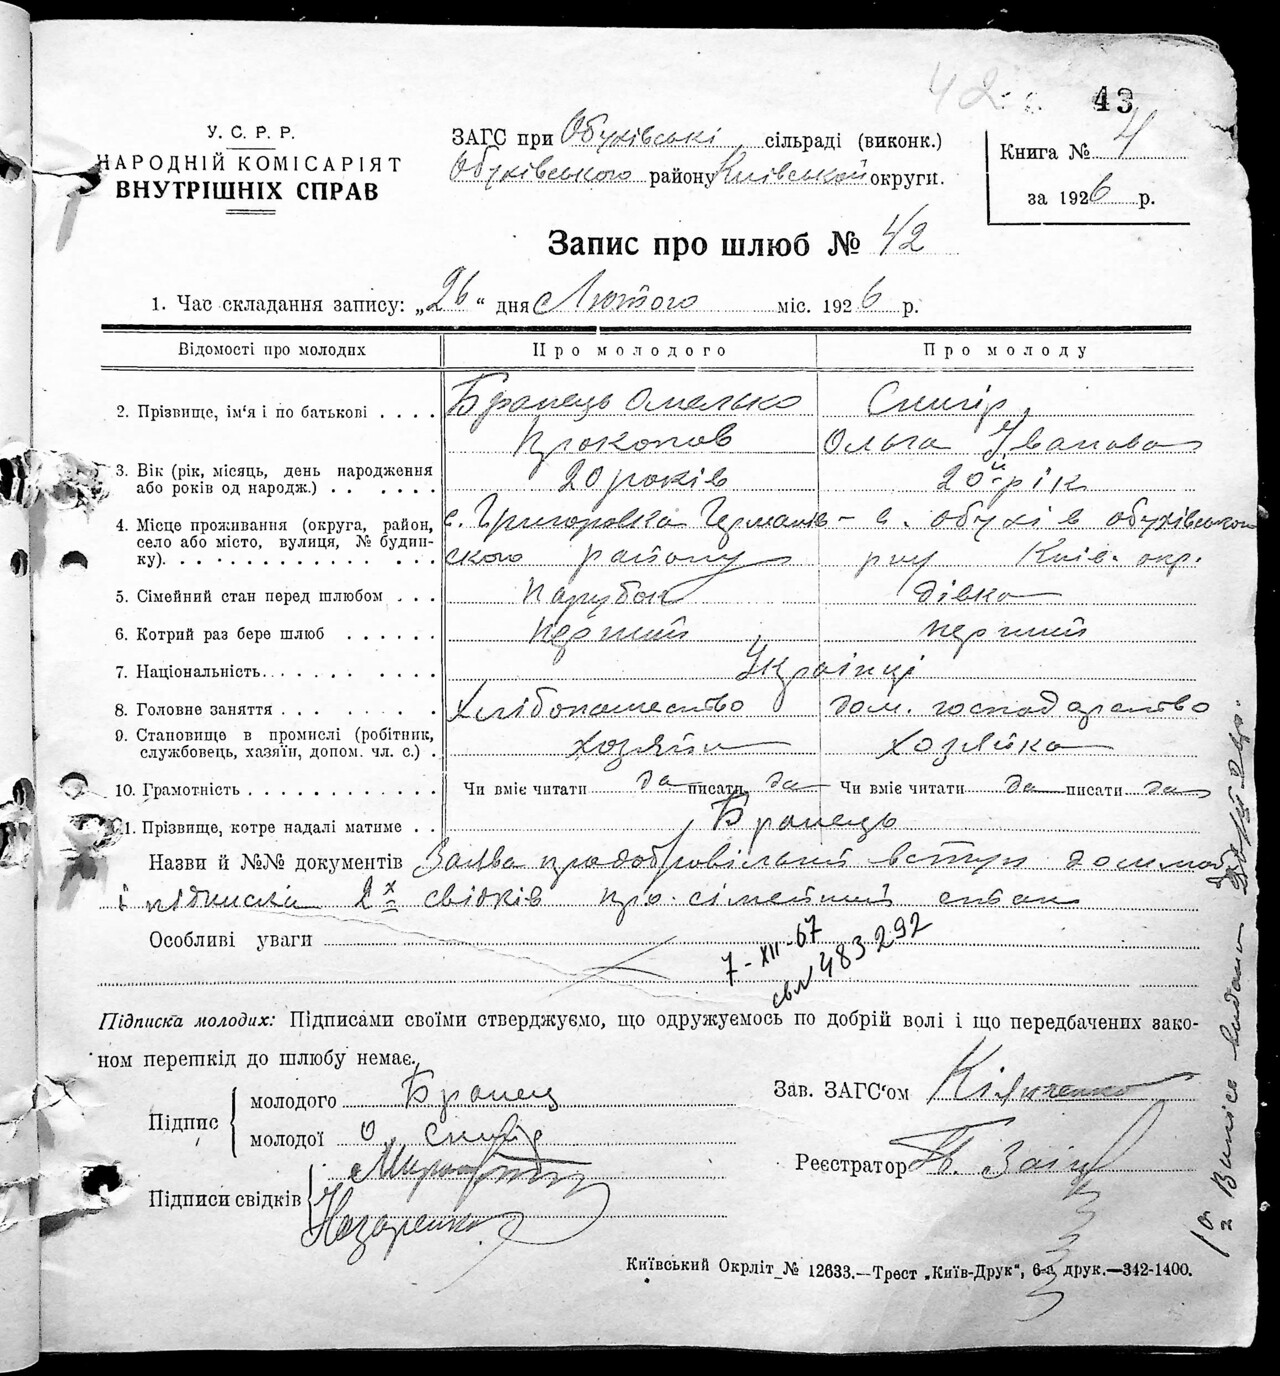 42
43
У. С. Р. Р.
НАРОДНІЙ КОМІСАРІЯТ
ВНУТРІШНІХ СПРАВ
ЗАГС при Обухівські сільраді (виконк.)
Обухівського району Київської округи.
Книга № 4
за 1926 р.
Запис про шлюб № 42
1. Час складання запису: „26“ дня Лютого міс. 1926 р.
Відомості про молодих
Про молодого
Про молоду
2. Прізвище, ім'я і по батькові
Бранець Омелько
Прокопов
Снигір
Ольга Іванова
3. Вік (рік, місяць, день народження
або років од народж.)
20 років
20й рік
4. Місце проживання (округа, район,
село або місто, вулиця, № будин-
ку).
с. Григоровка Германів-
ского району
с. Обухів Обухівського
р-ну Київ. окр.
5. Сімейний стан перед шлюбом
парубок
дівка
6. Котрий раз бере шлюб
перший
перший
7. Національність
Українці
8. Головне заняття
Хлібопашество
дом. господарство
9. Становище в промислі (робітник,
службовець, хазяїн, допом. чл. с.)
хозяїн
хозяйка
10. Грамотність
Чи вміє читати да писати да
Чи вміє читати да писати да
11. Прізвище, котре надалі матиме
Бранець
Назви й №№ документів Заява про добровільний вступ до шлюбу
і підписка 2х свідків про сімейний стан
Особливі уваги
7-XII-67
свл 483292
Підписка молодих: Підписами своїми стверджуємо, що одружуємось по добрій волі і що передбачених зако-
ном перешкід до шлюбу немає.
Підпис
молодого Бранец
молодої О Снигір
Підписи свідків
Назаренко
Зав. ЗАГС'ом
Реєстратор
Київський Окрліт № 12633.—Трест „Київ-Друк“, 6-а друк.—342-1400.